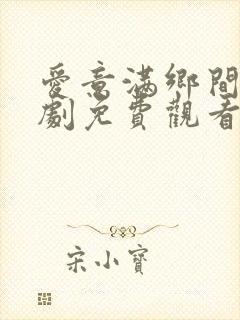 愛意滿鄉間
劇免費觀看
宋小寶